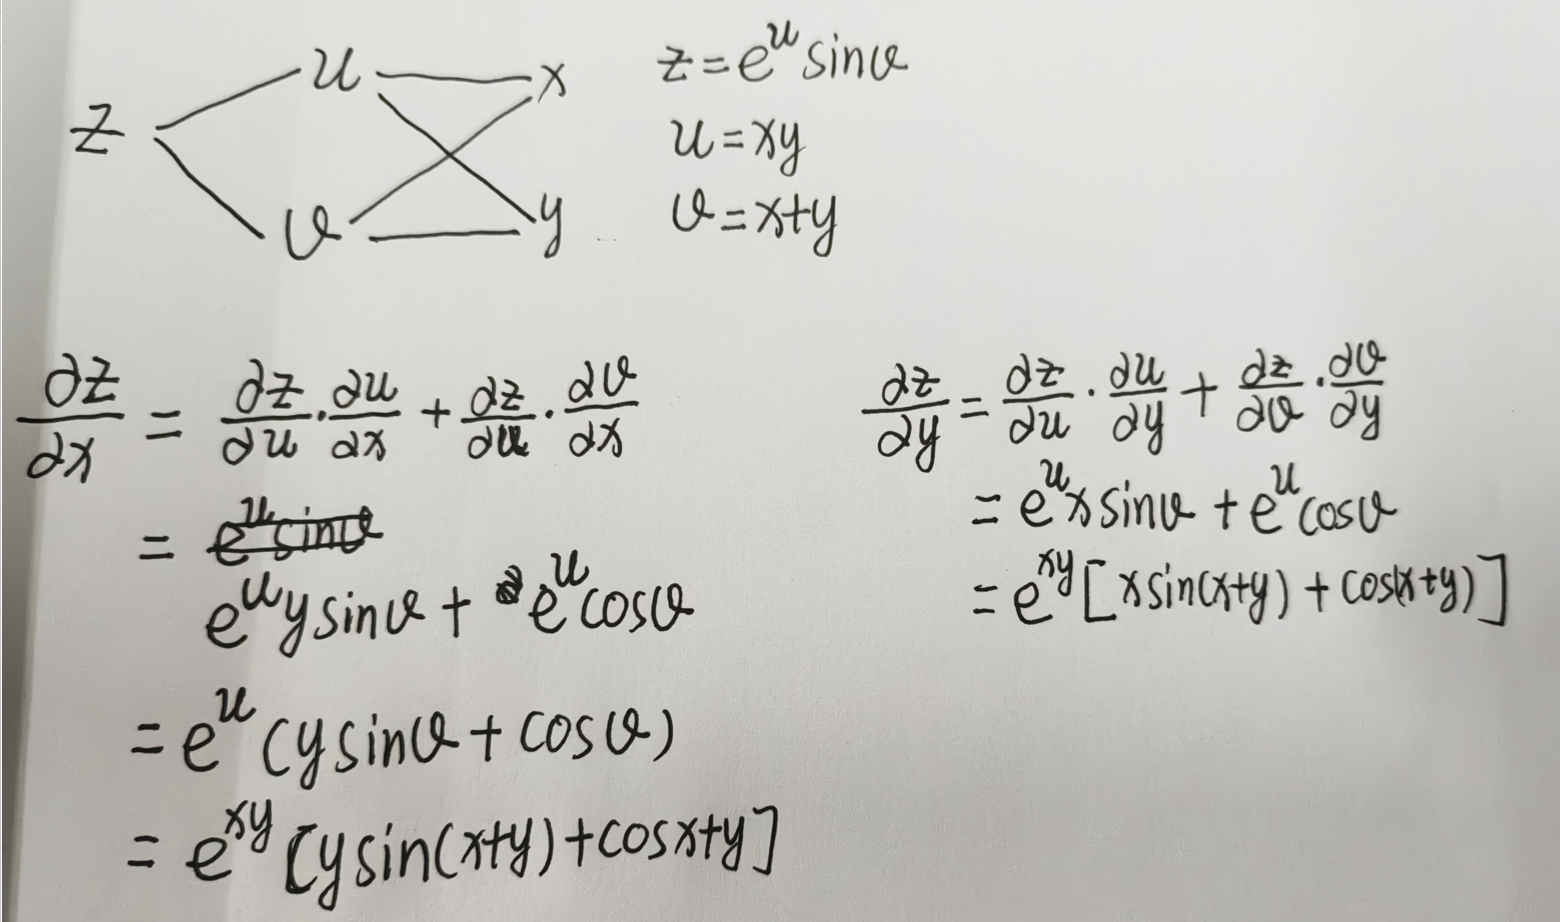 z
u
v
x
y
z = e^u sinv
u = xy
v = x+y
∂z/∂x = ∂z/∂u · ∂u/∂x + ∂z/∂u · ∂v/∂x
=
e^u y sinv + e^u cosv
= e^u (y sinv + cosv)
= e^{xy} [y sin(x+y) + cos x+y]
∂z/∂y = ∂z/∂u · ∂u/∂y + ∂z/∂v · ∂v/∂y
= e^u x sinv + e^u cosv
= e^{xy} [x sin(x+y) + cos(x+y)]